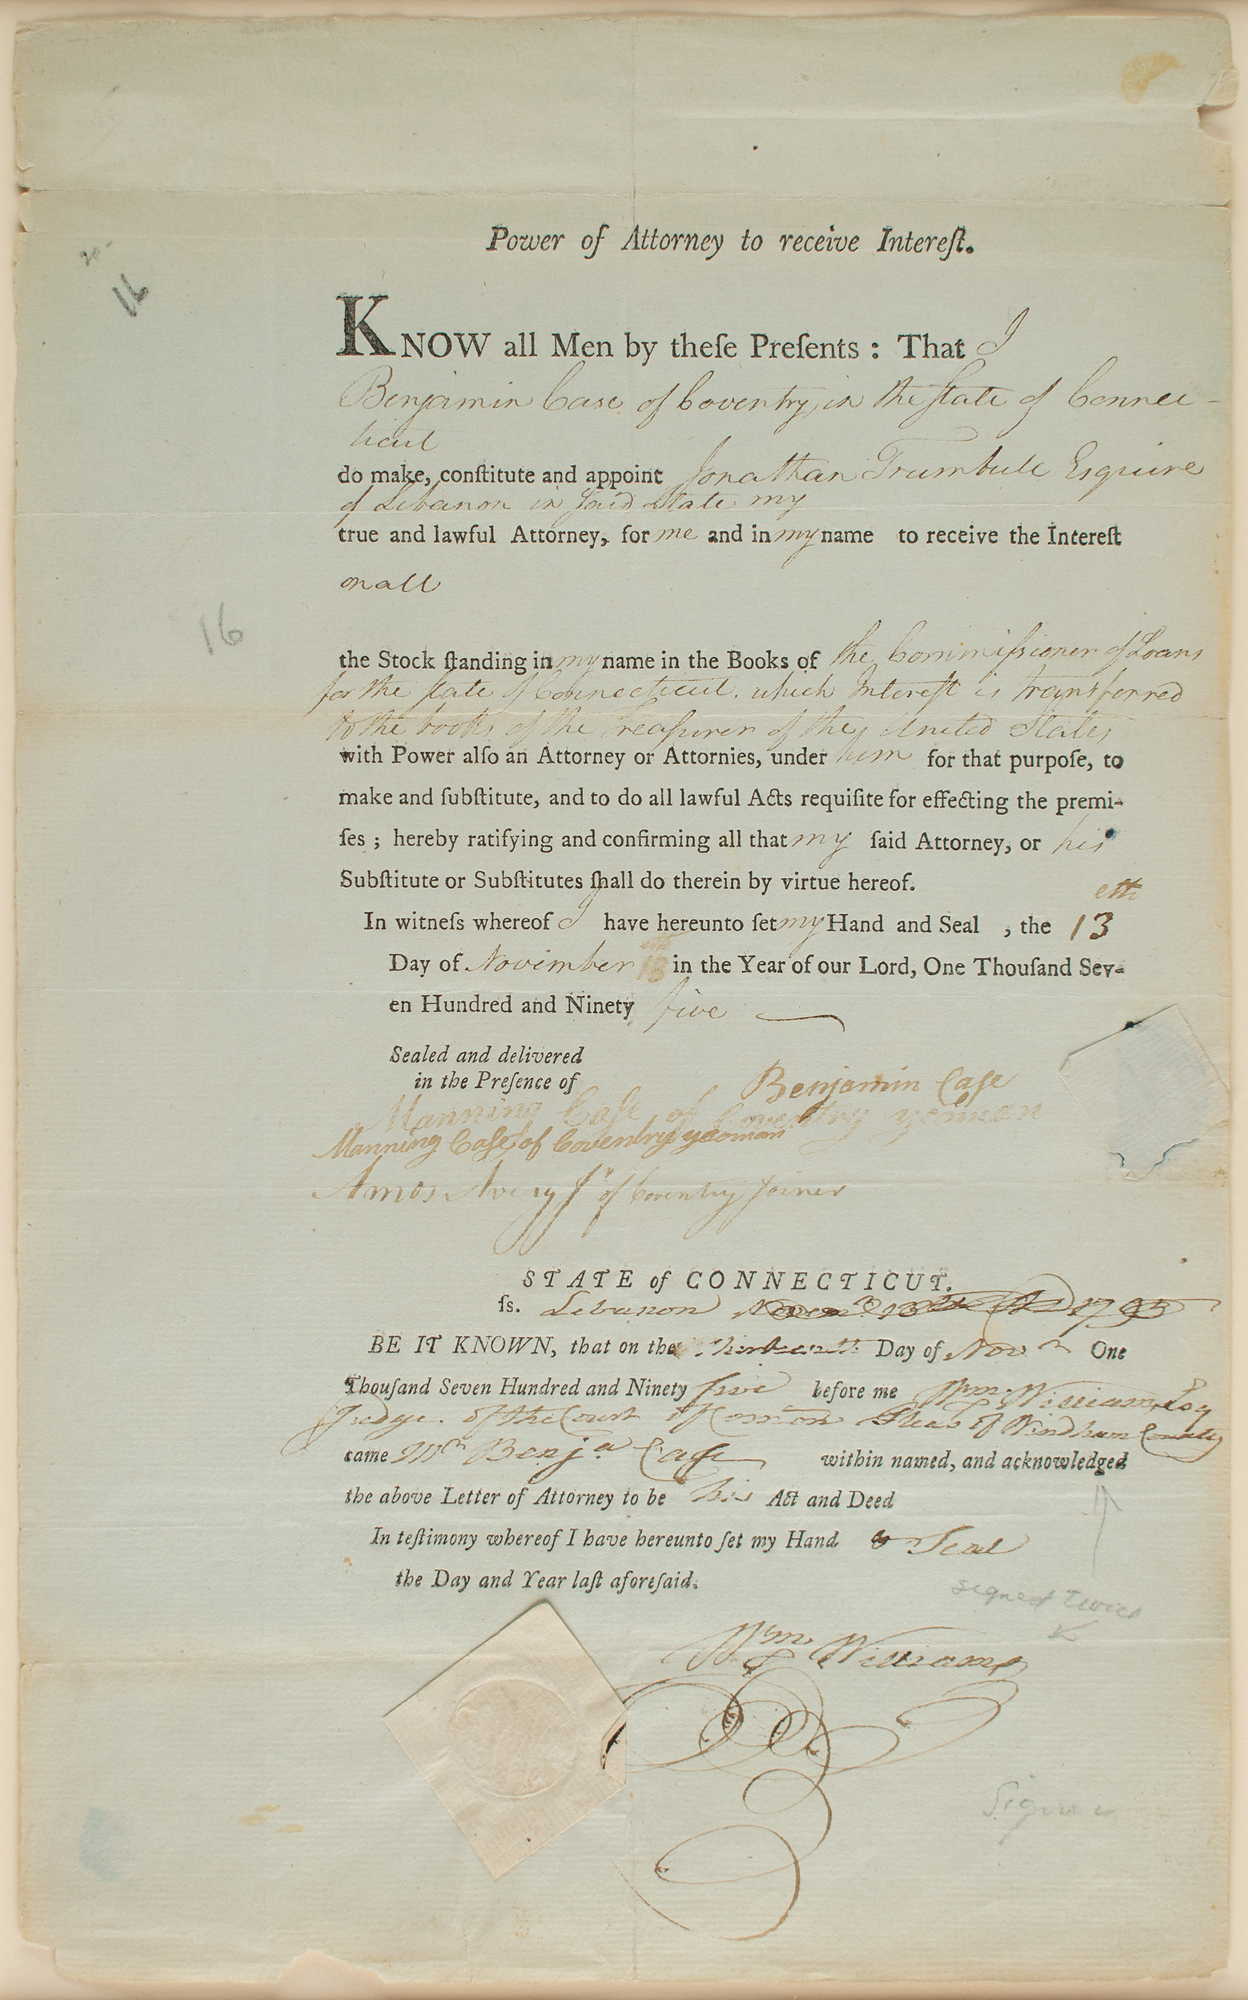 Power of Attorney to receive Intereſt.
KNOW all Men by theſe Preſents : That I
Benjamin Case of Coventry, in the ſtate of Connec-
ticut
do make, conſtitute and appoint Jonathan Trumbull Esquire
of Lebanon in ſaid State my
true and lawful Attorney, for me and in my name to receive the Intereſt
on all
16
16
the Stock ſtanding in my name in the Books of the Commiſsioner of Loans
for the ſtate of Connecticut. which Intereſt is transferred
to the books of the Treaſurer of the United States
with Power alſo an Attorney or Attornies, under him for that purpoſe, to
make and ſubſtitute, and to do all lawful Acts requiſite for effecting the premi-
ſes ; hereby ratifying and confirming all that my ſaid Attorney, or his
Subſtitute or Subſtitutes ſhall do therein by virtue hereof.
In witneſs whereof I have hereunto ſet my Hand and Seal , the 13 eth
Day of November in the Year of our Lord, One Thouſand Sev-
en Hundred and Ninety five
Sealed and delivered
in the Preſence of
Benjamin Caſe
Manning Caſe of Coventry yeoman
Manning Caſe of Coventry yeoman
Amos Avery Jr of Coventry Joiner
STATE of CONNECTICUT.
ſs. Lebanon Novem 13th 1795
BE IT KNOWN, that on the thirteenth Day of Novr One
Thouſand Seven Hundred and Ninety five before me Wm Williams Esq
Judge of the Court of Common Pleas of Windham County
came Mr Benja Caſe within named, and acknowledged
the above Letter of Attorney to be his Act and Deed
In teſtimony whereof I have hereunto ſet my Hand & Seal
the Day and Year laſt aforeſaid.
signed twice
Wm Williams